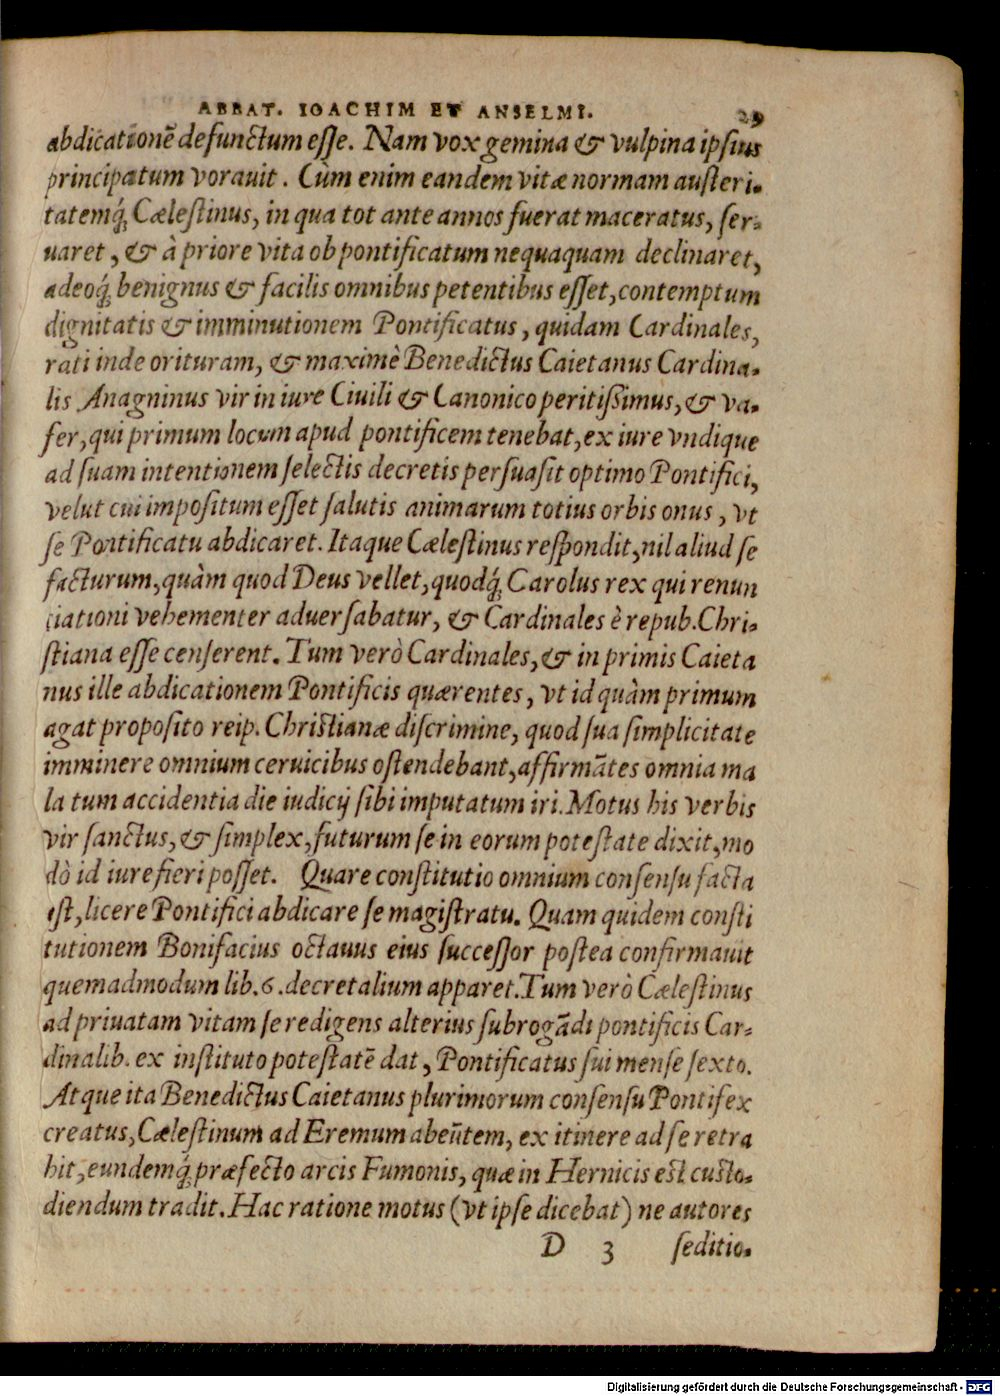 ABBAT. IOACHIM ET ANSELMI. 29
abdicationē defunctum esse. Nam vox gemina & vulpina ipsius
principatum vorauit. Cùm enim eandem vitæ normam austeri-
tatemq́; Cælestinus, in qua tot ante annos fuerat maceratus, ser-
uaret, & à priore vita ob pontificatum nequaquam declinaret,
adeoq́; benignus & facilis omnibus petentibus esset, contemptum
dignitatis & imminutionem Pontificatus, quidam Cardinales,
rati inde orituram, & maximè Benedictus Caietanus Cardina-
lis Anagninus vir in iure Ciuili & Canonico peritissimus, & va-
fer, qui primum locum apud pontificem tenebat, ex iure vndique
ad suam intentionem selectis decretis persuasit optimo Pontifici,
velut cui impositum esset salutis animarum totius orbis onus, vt
se Pontificatu abdicaret. Itaque Cælestinus respondit, nil aliud se
facturum, quàm quod Deus vellet, quodq́; Carolus rex qui renun
ciationi vehementer aduersabatur, & Cardinales è repub. Chri-
stiana esse censerent. Tum verò Cardinales, & in primis Caieta
nus ille abdicationem Pontificis quærentes, vt id quàm primum
agat proposito reip. Christianæ discrimine, quod sua simplicitate
imminere omnium ceruicibus ostendebant, affirmātes omnia ma
la tum accidentia die iudicij sibi imputatum iri. Motus his verbis
vir sanctus, & simplex, futurum se in eorum potestate dixit, mo
dò id iure fieri posset. Quare constitutio omnium consensu facta
est, licere Pontifici abdicare se magistratu. Quam quidem consti
tutionem Bonifacius octauus eius successor postea confirmauit
quemadmodum lib. 6. decretalium apparet. Tum verò Cælestinus
ad priuatam vitam se redigens alterius subrogādi pontificis Car-
dinalib. ex instituto potestatē dat, Pontificatus sui mense sexto.
Atque ita Benedictus Caietanus plurimorum consensu Pontifex
creatus, Cælestinum ad Eremum abeūtem, ex itinere ad se retra
hit, eundemq́; præfecto arcis Fumonis, quæ in Hernicis est custo-
diendum tradit. Hac ratione motus (vt ipse dicebat) ne autores
D 3 seditio-
Digitalisierung gefördert durch die Deutsche Forschungsgemeinschaft - DFG